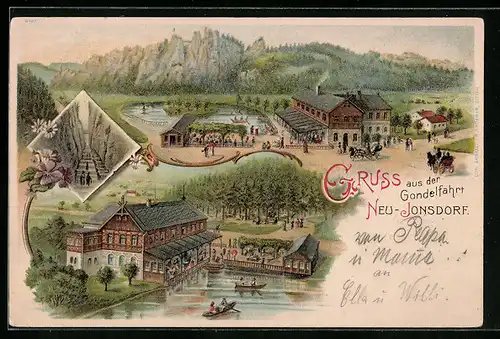 GRUSS
aus der
Gondelfahrt
NEU-JONSDORF.
von Papa
u Mama
an
Ella u Willi.